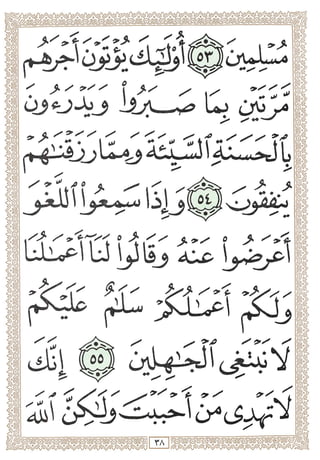 مُسْلِمِينَ ٥٣ أُوْلَٰٓئِكَ يُؤْتَوْنَ أَجْرَهُم
مَّرَّتَيْنِ بِمَا صَبَرُوا۟ وَيَدْرَءُونَ
بِٱلْحَسَنَةِ ٱلسَّيِّئَةَ وَمِمَّا رَزَقْنَٰهُمْ
يُنفِقُونَ ٥٤ وَإِذَا سَمِعُوا۟ ٱللَّغْوَ
أَعْرَضُوا۟ عَنْهُ وَقَالُوا۟ لَنَآ أَعْمَٰلُنَا
وَلَكُمْ أَعْمَٰلُكُمْ سَلَٰمٌ عَلَيْكُمْ
لَا نَبْتَغِى ٱلْجَٰهِلِينَ ٥٥ إِنَّكَ
لَا تَهْدِى مَنْ أَحْبَبْتَ وَلَٰكِنَّ ٱللَّهَ
٣٨